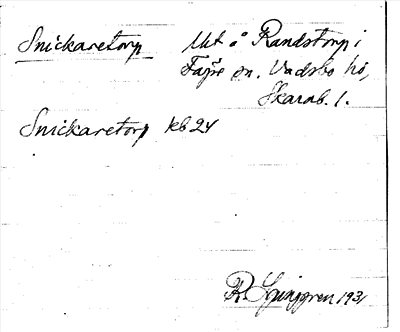 Snickaretorp Utj å Randstorp i
Fägre sn. Vadsbo hd,
Skarab. l.
Snickaretorp kb 24
R. Ljunggren 1931